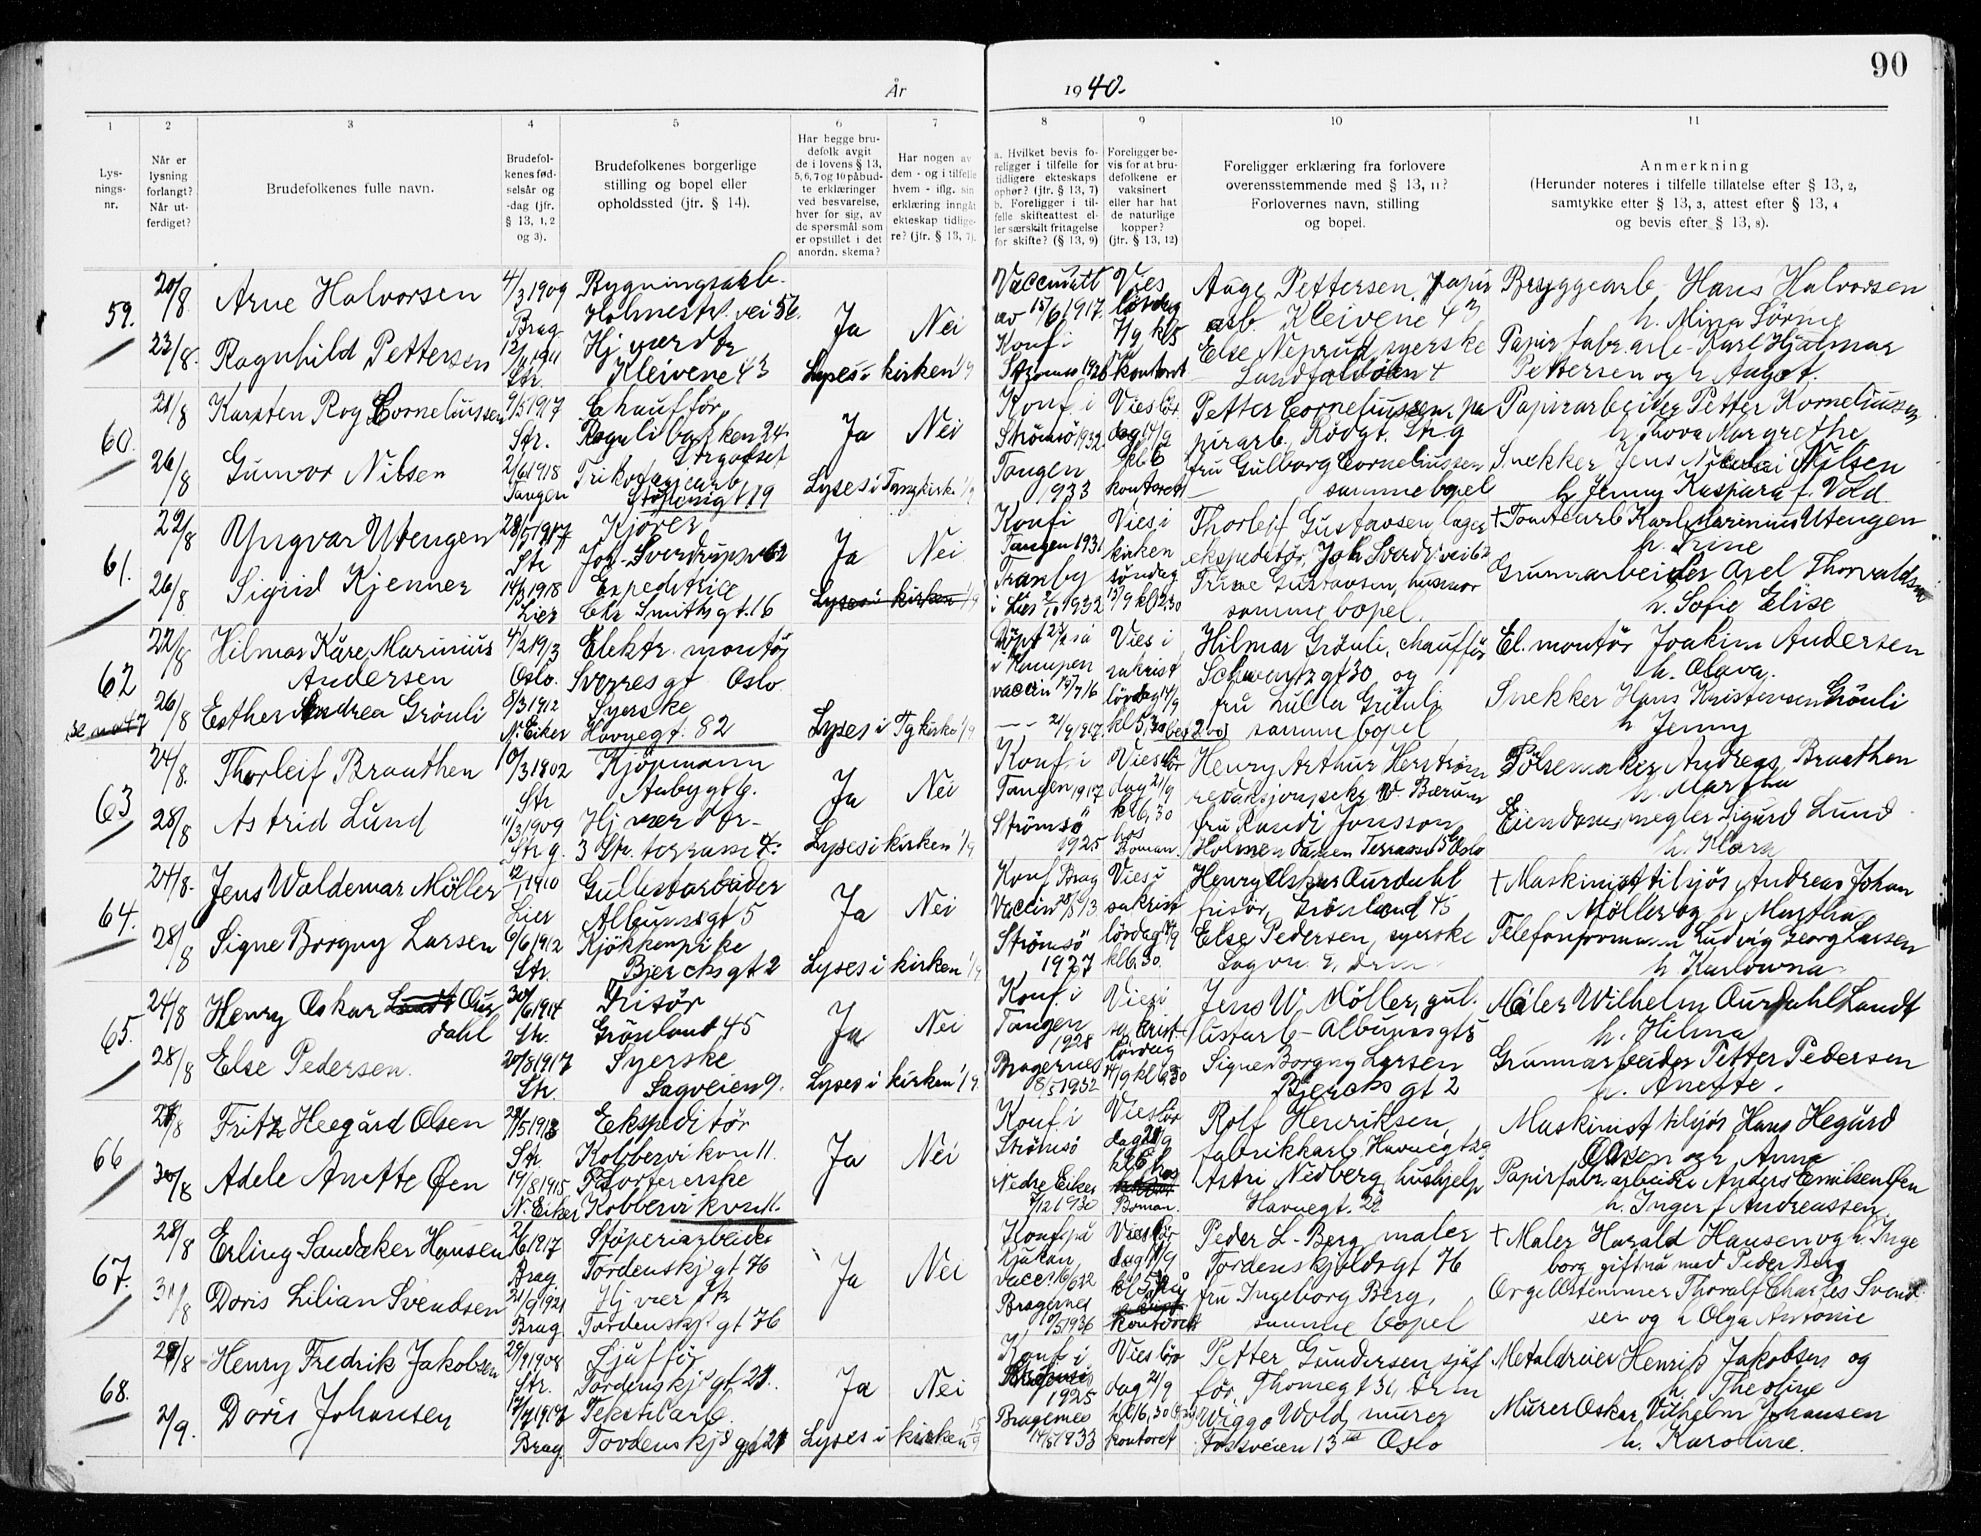 90
År 1940.
1 2 3 4 5 6 7 8 9 10 11
Lysningsnr.
Når er lysning forlangt? Når utferdiget?
Brudefolkenes fulle navn.
Brudefolkenes fødselsår og -dag (jfr. § 13, 1, 2 og 3).
Brudefolkenes borgerlige stilling og bopel eller opholdssted (jfr. § 14).
Har begge brudefolk avgit de i lovens § 13, 5, 6, 7 og 10 påbudte erklæringer ved besvarelse, hver for sig, av de spørsmål som er opstillet i det anordn. skema?
Har nogen av dem - og i tilfelle hvem - iflg. sin erklæring inngått ekteskap tidligere? (jfr. § 13, 7).
a. Hvilket bevis foreligger i tilfelle for tidligere ekteskaps ophør? (jfr. § 13, 7) b. Foreligger i tilfelle skifteattest eller særskilt fritagelse for skifte? (§ 13, 9)
Foreligger bevis for at brudefolkene er vaksinert eller har hat de naturlige kopper? (jfr. § 13, 12)
Foreligger erklæring fra forlovere overensstemmende med § 13, 11? Forlovernes navn, stilling og bopel.
Anmerkning (Herunder noteres i tilfelle tillatelse efter § 13, 2, samtykke efter § 13, 3, attest efter § 13, 4 og bevis efter § 13, 8).
59. 20/8 Arne Halvorsen 4/3 1909 Brag Bygningsarb. Holmestr. vei 56 Ja Nei
Vaccinatt av 15/6 1917 Vies lørdag 7/9 kl 5 Aage Pettersen, papirarb. Kleivene 43 Bryggearb Hans Halvorsen
23/8. Ragnhild Pettersen 1911 Str. Hj værdtr Kleivene 43 Lyses i kirken 1/9
Konf i Strømsø 1926 kontoret Else syerske Papirfabr.arb. Karl Hjalmar Pettersen og h. Aagot.
60. 21/8 Karsten Roy Corneliussen 9/5 1917 Str. Chauffør Ja Nei
Konf i Strømsø 1932 Vies lørdag 14/9 kl 6 Petter Corneliussen, papirarb. Rødgt. Papirarbeider Petter Korneliussen h. Thova Margrethe
26/8 Gunvor Nilsen 2/6 1918 Tangen Trikotagearb 119 Lyses i Tangkirke 1/9
Tangen 1933 kontoret fru Gulborg Corneliussen samme bopel Snekker Jens Nicolai Nilsen h Jenny Kaspara f. Vold
61. 22/8 Yngvar Utengen 1917 Str Kjører Joh. Sverdrupsv 62 Ja Nei
Konf i Tangen 1931 Vies i kirken Thorleif Gustavsen lagerekspeditør, Joh Sverdr vei 62 + Tomtearb Karl Marinius Utengen h. Trine
26/8 Sigrid Kjenner 14/3 1918 Lier Expeditrice Chr Smithsgt. 16 Lyses i kirken 1/9
Tranby i Lier 1932 søndag 15/9 kl 12.30 Trine Gustavsen, husmor samme bopel. Grunnarbeider Axel Thorvaldsen h. Sofie Elise
62 22/8 Hilmar Kåre Marinius Andersen 4/2 1913 Oslo Elektr. montør Sverresgt Oslo
vaccin 15/7 16 Vies i sakrist lørdag 14/9 Hilmar Grønli, chauffør Schwartzgt 30 og El. montør Joakim Andersen h. Olava.
26/8 Esther Andrea Grønli 8/3 1912 N. Eiker Syerske Havnegt. 82 Lyses i Tg kirke 1/9
fru Lulla Grønli samme bopel Snekker Hans Kristensen Grönli h Jenny
63 24/8. Thorleif Braathen 1902 Str Kjøpmann Aabygt 6. Ja Nei
Konf. i Tangen 1917 Vies lørdag 21/9 kl 6,30 Henry Arthur Herstrøm W. Bærum Pølsemaker Andreas Braathen h. Martha
28/8 Astrid Lund 1909 Str. g. Hj vær dtr. 3 Str. terrasse Lyses i kirken 1/9
Strømsø 1925 hos Boman. fru Randi Jonsson Holmendammen Terrasse Oslo Eiendomsmegler Sigurd Lund h. Klara
64. 24/8. Jens Waldemar Möller 1910 Lier Gullistarbeider Albumsgt 5 Ja Nei
Konf. Brag Vaccin 13 Vies i sakrist Henry Oskar Aurdahl frisør, Grønland 45 + Maskinist tilsjøs Andreas Johan Møller og h Martha
28/8 Signe Borgny Larsen 6/6 1912 Str. Kjøkkenpike Bjercksgt 2 Lyses i kirken 1/9
Strømsø 1927 lørdag kl 6.30 Else Pedersen, syerske Telefonformann Ludvig Georg Larsen h. Karlowna
65. 24/8 Henry Oskar Landt Aurdahl 30/6 1914 Str. Frisør Grønland 45 Ja Nei
Konf. i Tangen 1928 Vies i sakrist. Jens W. Möller, gullistarb - Albumsgt 5 Maler Wilhelm Aurdahl Landt h. Hilma
28/8 Else Pedersen. 20/8 1917 Str. Syerske Sagveien 9. Lyses i kirken 1/9
Bragernes 1932 lørdag 14/9 kl 6.30 Signe Borgny Larsen Bjercks gt 2 Grunnarbeider Petter Pedersen h. Anette.
66 Fritz Heegård Olsen 1913 Str. Ekspeditør Kobbervikvn 11. Ja Nei
Konf. i Strømsø Vies lørdag 21/9 kl 6 Rolf Henriksen, fabrikkarb, Havnegt Maskinist tilsjøs Hans Hegård Olsen og h Anna
30/8 Adele Anette Øen 19/8 1915 N. Eiker Portererske Kobbervikvn 11.
Nedre Eiker 1930 hos Boman. Astri Nedberg, hushjelp Havnegt. Papirfabr. arbeider Anders Emilsen Øen h. Inger f Andreassen
67. 28/8 Erling Sandaker Hansen 1917 Brag. Støperiarbeider Tordenskj gt 76 Ja Nei
Konf på Rjukan Vies lørdag Peder L. Berg, maler Tordenskjoldsgt 76 + Maler Harald Hansen og h. Ingeborg gift nå med Peder Berg
31/8 Doris Lilian Svendsen 21/9 1921 Brag. Hj vær dtr Tordenskj gt 76
Bragernes 1936 kontoret fru Ingeborg Berg, samme bopel Orgelstemmer Thoralf Charles Svendsen og h Olga Antonie
68. 29/8 Henry Fredrik Jakobsen 29/9 1908 Str. Sjåffør Tordenskj gt 21. Ja Nei
Konf i 1925 Vies lørdag 21/9 Petter Gundersen sjåffør, Thomegt 31, Drm Metaldreier Henrik Jakobsen og h. Theoline
2/9. Doris Johansen 1917 Brag. Tekstilarb. Tordenskj gt 21 Lyses i kirken 15/9
Bragernes 1933 kl 16,30 kontoret Wiggo Wold, murer Fossveien 13 Oslo Murer Oskar Vilhelm Johansen h. Karoline.